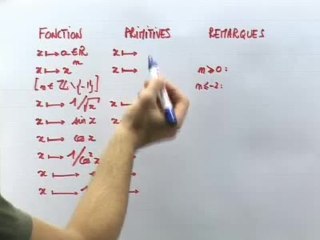 FONCTION PRIMITIVES REMARQUES
x ↦ a ∈ ℝ x ↦
x ↦ xⁿ x ↦ n ≥ 0 :
[n ∈ ℤ \ {-1}] n ≤ -2 :
x ↦ 1/√x x ↦
x ↦ sin x x
x ↦ cos x
x ↦ 1/cos² x
x ↦
x ↦